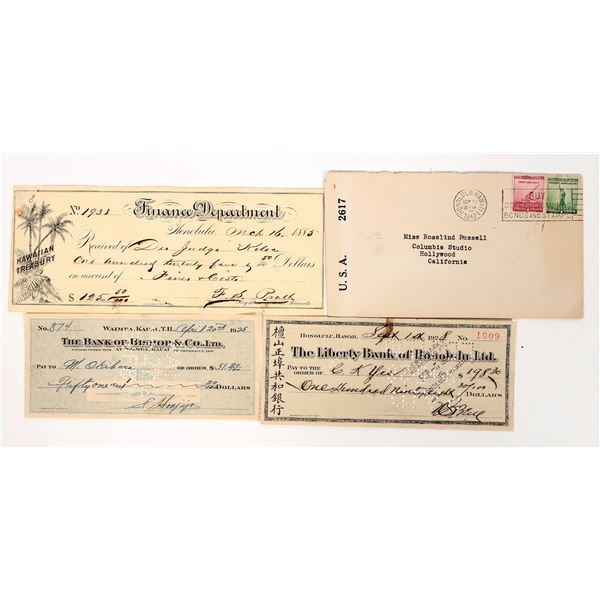 No. 1933 Finance Department
Honolulu Mch 16, 1885
Received of Dis Judge Koloa
One hundred twenty five 00/100 Dollars
on account of Fines & Costs
$ 125.00/100
HAWAIIAN
TREASURY
U.S.A. 2617
HONOLULU, HAWAII
1942
BUY
BONDS AND STAMPS
Miss Rosalind Russell
Columbia Studio
Hollywood
California
No. 874 WAIMEA, KAUAI, T.H. April 20th 1925
THE BANK OF BISHOP & CO., LTD.
AT WAIMEA, KAUAI
PAY TO M. Okihara OR ORDER, $ 51.00
Fifty one and DOLLARS
HONOLULU, HAWAII, Sept 1st 1928 No. 1009
The Liberty Bank of Honolulu, Ltd.
PAY TO THE
ORDER OF C. K. Yee $ 198.30
One Hundred Ninety eight 30/100 DOLLARS
檀山正埠共和銀行